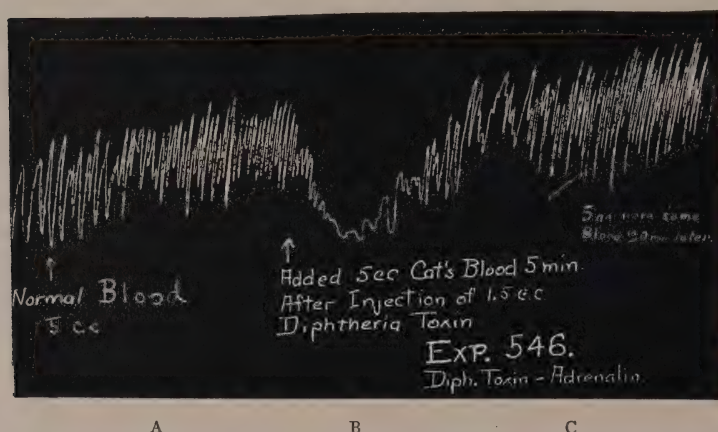 Normal Blood
5 cc
Added 5cc Cat's Blood 5 min
After Injection of 1.5 c.c
Diphtheria Toxin
5 more same
Blood later.
EXP. 546.
Diph. Toxin - Adrenalin.
A B C